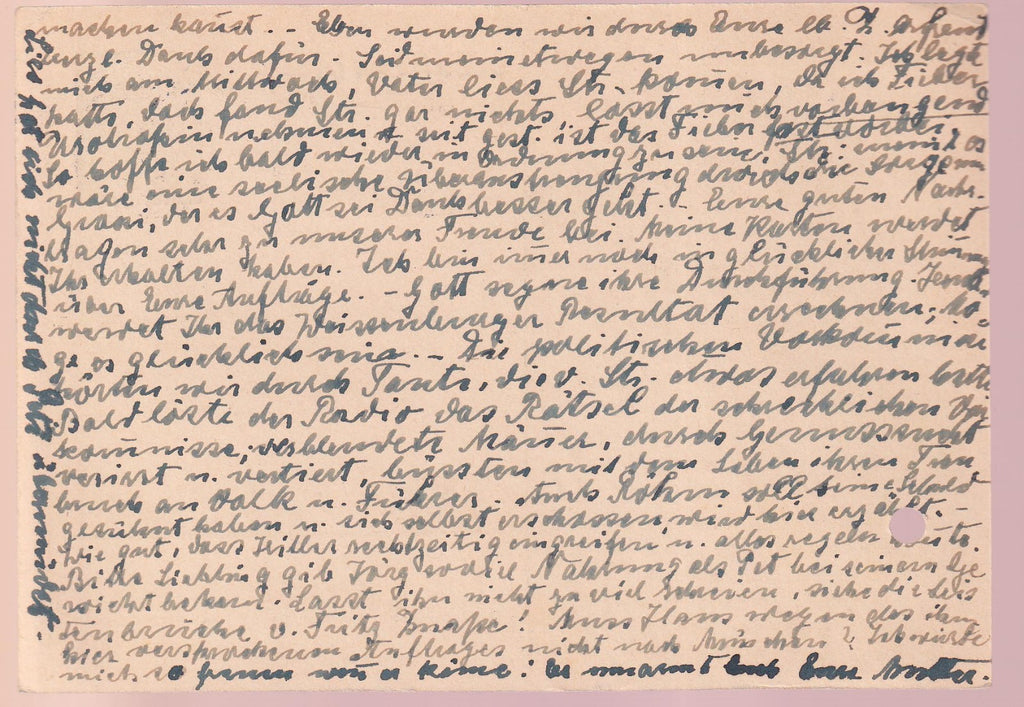 machen kannst. - Eben wurden wir durch Eure lb. Z. erfreut
herzl. Dank dafür. Seid meinetwegen unbesorgt. Ich legte
mich am Mittwoch, Vater liess Str. kommen, da ich Fieber
hatte, doch fand Str. gar nichts, lässt mich vorbeugend
nehmen u. seit gest. ist das Fieber fast vorbei.
So hoffe ich bald wieder in Ordnung zu sein. Str. meint es
wäre eine seelische Überanstrengung durch die Sorge um
, der es Gott sei Dank besser geht. - Eure guten Nachr.
tragen sehr zu unserer Freude bei. Meine Karten werdet
Ihr erhalten haben. Ich bin immer noch in glücklicher Stimmung
über Eure Aufträge. - Gott segne ihre Durchführung.
werdet Ihr das Weissenburger Resultat errechnen, Mö-
ge es glücklich sein. - Die politischen Vorkommnisse
hörten wir durch Tante, die v. Str. etwas erfahren hatte
Bald löste der Radio das Rätsel der schrecklichen Vor-
kommnisse, verblendete Männer, durch Genusssucht
verirrt u. vertiert, büssten mit dem Leben ihren Treu-
bruch an Volk u. Führer. Auch Röhm soll seine Schuld
gesühnt haben u. sich selbst erschossen, wird hier erzählt. -
Wie gut, dass Hitler rechtzeitig eingreifen u. alles regeln konnte.
Bitte Liebling gib Jörg soviel Nahrung als Pet bei seinem Ge-
wicht bekam. Lasst ihn nicht zu viel schreien, siehe die Leis-
tenbrüche v. Fritz Knape! Muss Hans wegen des ihm
hier versprochenen Auftrages nicht nach München? Ich würde
mich so freuen wenn er käme! Es umarmt Euch Eure Mutter.